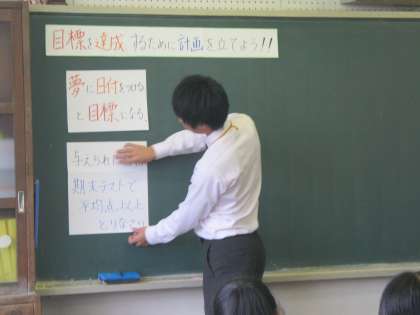 目標を達成するために計画を立てよう!!
夢に日付をつける
と目標になる。
与えられ
期末テストで
平均点以上
とりなさい